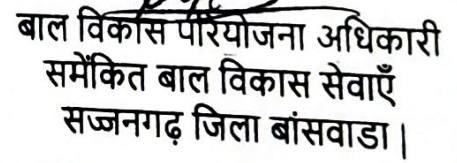 बाल विकास परियोजना अधिकारी
समेंकित बाल विकास सेवाएँ
सज्जनगढ़ जिला बांसवाडा |